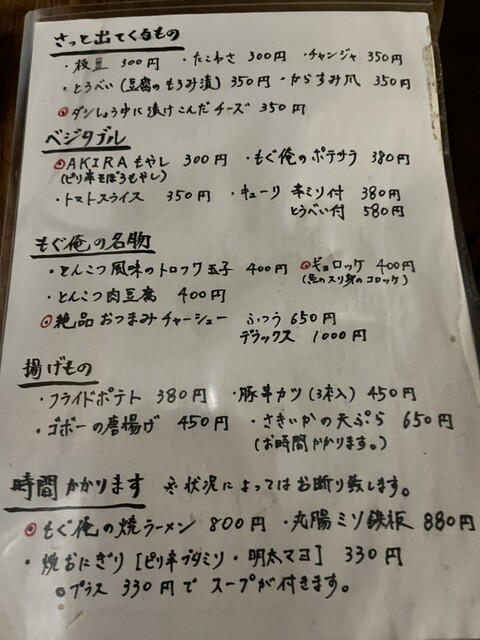 さっと出てくるもの
・枝豆 300円 ・たこわさ 300円 ・チャンジャ 350円
・とうべい(豆腐のもろみ漬) 350円 ・からすみ爪 350円
ダシしょう中に漬けこんだチーズ 350円
ベジタブル
AKIRAもやし 300円 ・もぐ俺のポテサラ 380円
(ピリ辛そぼろもやし)
・トマトスライス 350円 ・キューリ 辛ミソ付 380円
とうべい付 580円
もぐ俺の名物
・とんこつ風味のトロフワ玉子 400円 ギョロッケ 400円
(魚のスリ身のコロッケ)
・とんこつ肉豆腐 400円
絶品おつまみチャーシュー ふつう 650円
デラックス 1000円
揚げもの
・フライドポテト 380円 ・豚串カツ(3本入) 450円
・ゴボーの唐揚げ 450円 ・さきいかの天ぷら 650円
(お時間かかります。)
時間かかります ※状況によってはお断り致します。
もぐ俺の焼ラーメン 800円 ・丸腸ミソ鉄板 880円
・焼おにぎり[ピリ辛ブタミソ・明太マヨ] 330円
プラス 330円でスープが付きます。